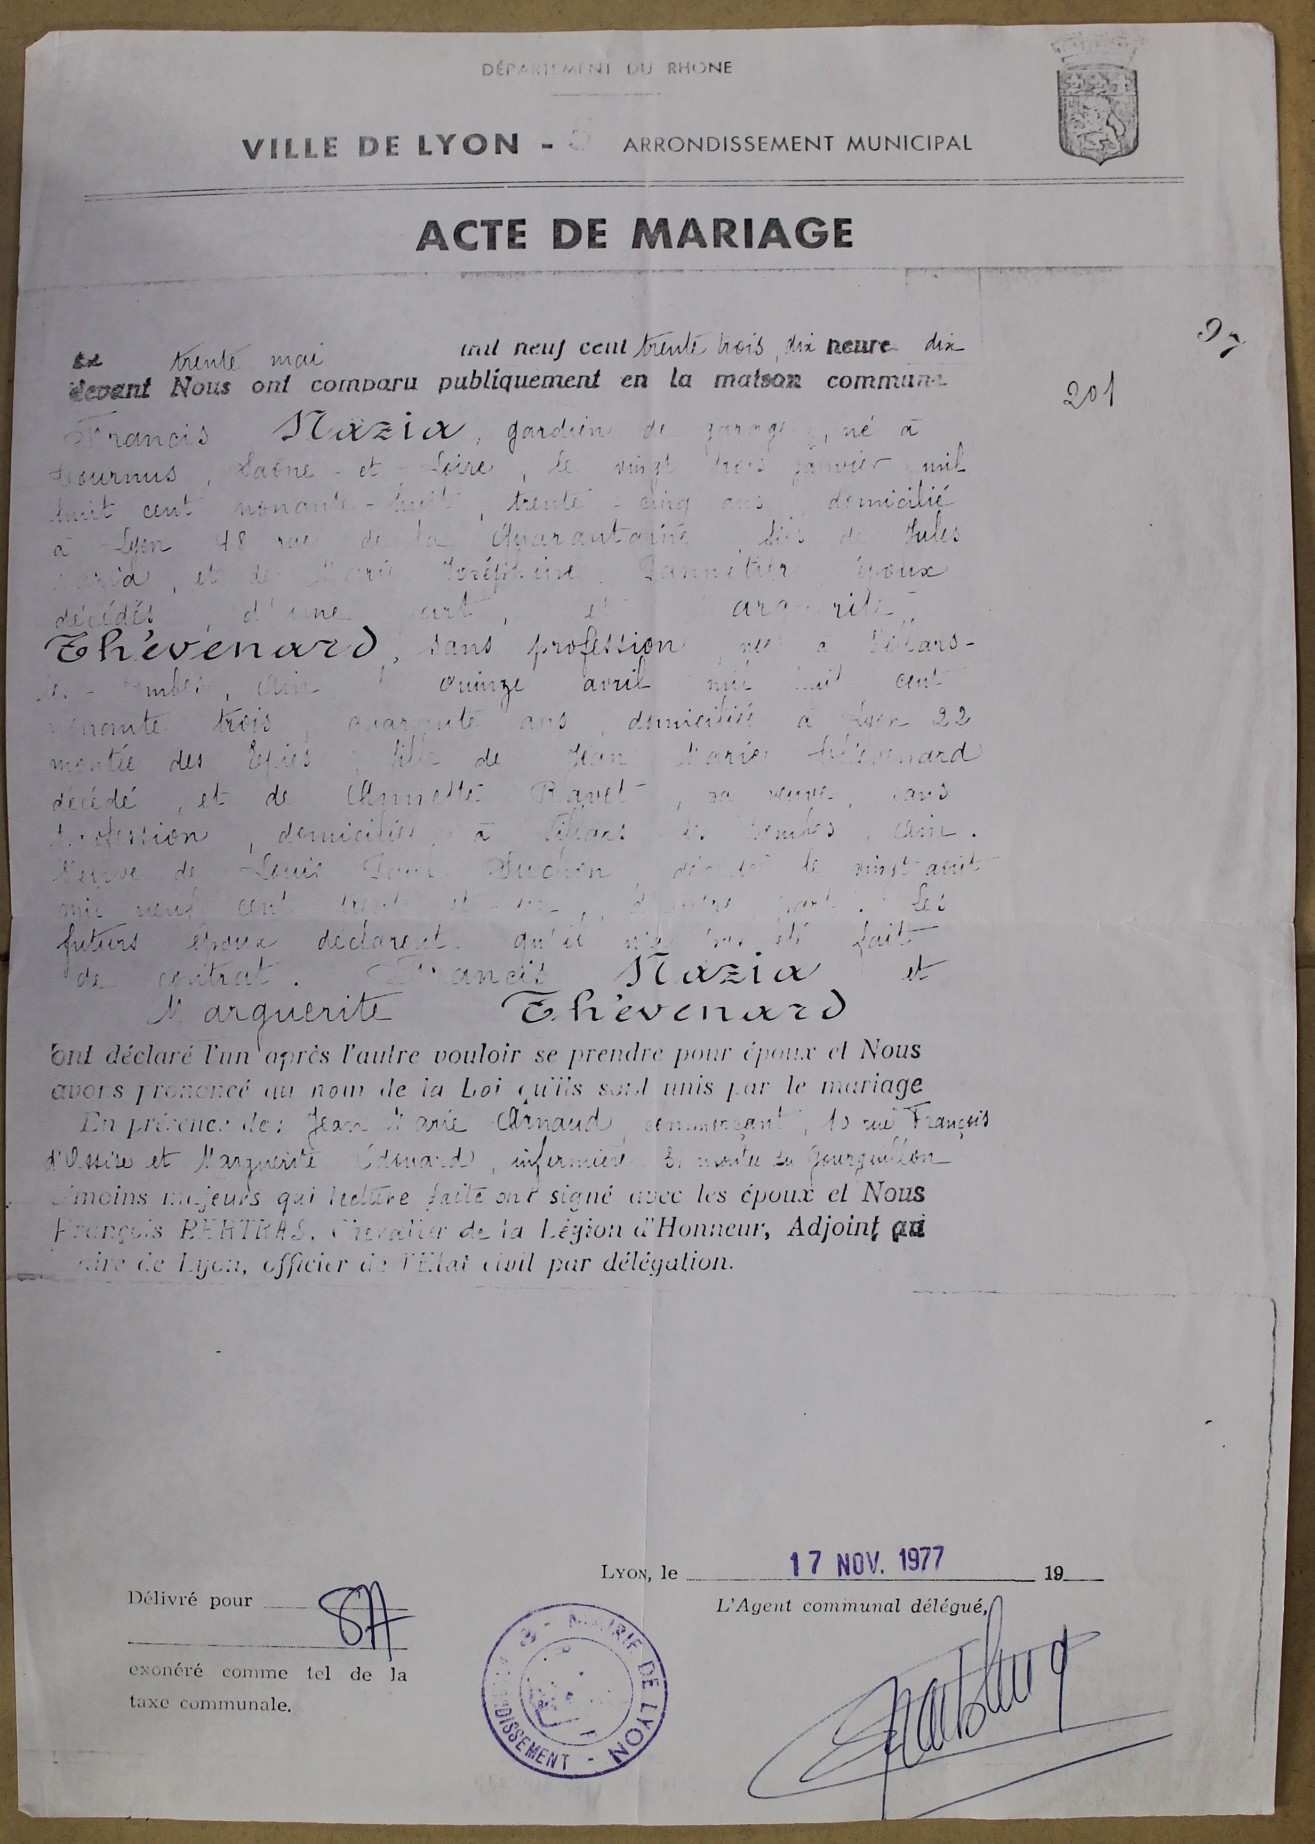 DÉPARTEMENT DU RHONE
VILLE DE LYON - 5 ARRONDISSEMENT MUNICIPAL
ACTE DE MARIAGE
97
Le trente mai mil neuf cent trente trois, dix heure dix
devant Nous ont comparu publiquement en la maison commune
201
Francis Nazia, gardien de garage, né à
Tournus, Saône-et-Loire, le vingt trois janvier mil
huit cent nonante-huit, trente-cinq ans, domicilié
à Lyon 48 rue de la Quarantaine, fils de Jules
Nazia, et de Marie Joséphine époux
décédés, d'une part, et Marguerite
Thévenard, sans profession née à Villars-
les-Dombes, Ain le quinze avril mil huit cent
nonante trois, quarante ans, domiciliée à Lyon 22
montée des Epies, fille de Jean Marie Thévenard
décédé, et de Annette Ravet, sa veuve, sans
profession, domiciliée à Villars les Dombes, Ain.
Veuve de Louis décédé le vingt août
mil neuf cent trente et un, d'autre part. Les
futurs époux déclarent qu'il n'a pas été fait
de contrat. Francis Nazia et
Marguerite Thévenard
ont déclaré l'un après l'autre vouloir se prendre pour époux et Nous
avons prononcé au nom de la Loi qu'ils sont unis par le mariage
En présence de: Jean Marie Arnaud, commerçant, 10 rue François
d'Assise et Marguerite Edouard, infirmière montée du Gourguillon
témoins majeurs qui lecture faite ont signé avec les époux et Nous
François BERTRAS, Chevalier de la Légion d'Honneur, Adjoint au
Maire de Lyon, officier de l'Etat civil par délégation.
LYON, le 17 NOV. 1977 19
Délivré pour SA
L'Agent communal délégué,
exonéré comme tel de la
taxe communale.
MAIRIE DE LYON - ARRONDISSEMENT -